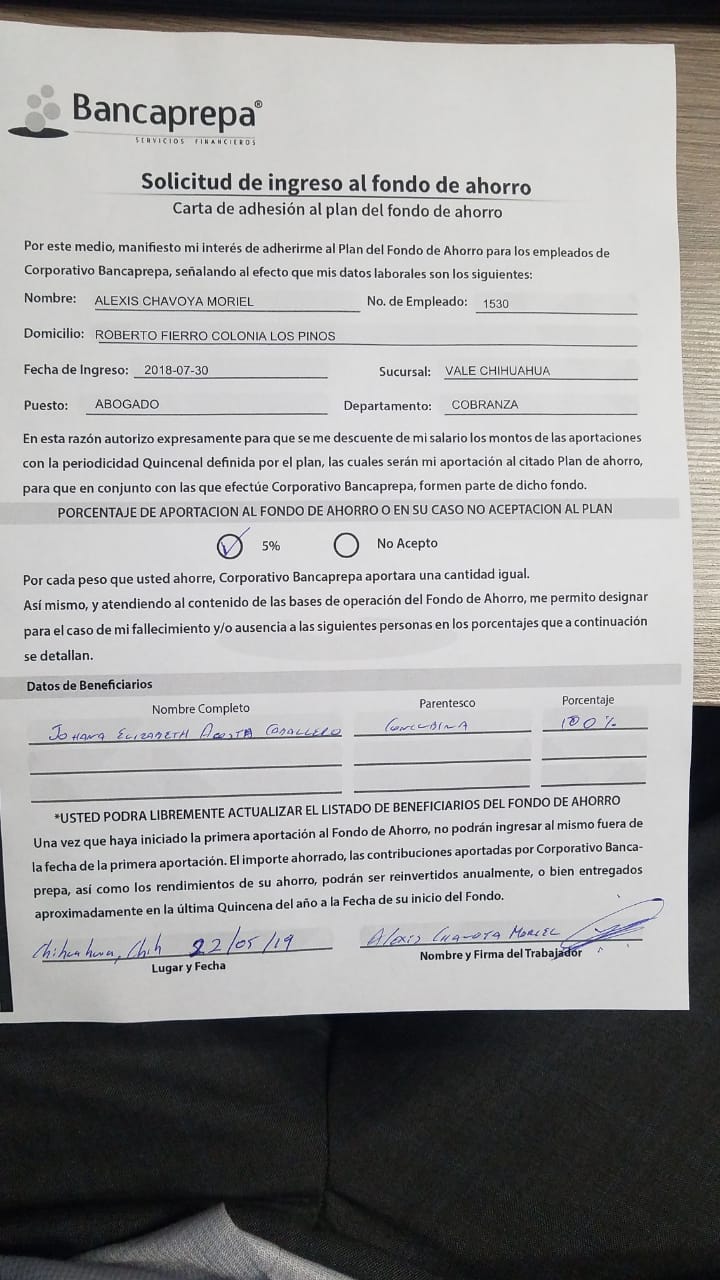 Bancaprepa®
SERVICIOS FINANCIEROS
Solicitud de ingreso al fondo de ahorro
Carta de adhesión al plan del fondo de ahorro
Por este medio, manifiesto mi interés de adherirme al Plan del Fondo de Ahorro para los empleados de
Corporativo Bancaprepa, señalando al efecto que mis datos laborales son los siguientes:
Nombre: ALEXIS CHAVOYA MORIEL No. de Empleado: 1530
Domicilio: ROBERTO FIERRO COLONIA LOS PINOS
Fecha de Ingreso: 2018-07-30 Sucursal: VALE CHIHUAHUA
Puesto: ABOGADO Departamento: COBRANZA
En esta razón autorizo expresamente para que se me descuente de mi salario los montos de las aportaciones
con la periodicidad Quincenal definida por el plan, las cuales serán mi aportación al citado Plan de ahorro,
para que en conjunto con las que efectúe Corporativo Bancaprepa, formen parte de dicho fondo.
PORCENTAJE DE APORTACION AL FONDO DE AHORRO O EN SU CASO NO ACEPTACION AL PLAN
5% No Acepto
Por cada peso que usted ahorre, Corporativo Bancaprepa aportara una cantidad igual.
Así mismo, y atendiendo al contenido de las bases de operación del Fondo de Ahorro, me permito designar
para el caso de mi fallecimiento y/o ausencia a las siguientes personas en los porcentajes que a continuación
se detallan.
Datos de Beneficiarios
Nombre Completo Parentesco Porcentaje
Johana Elizabeth Acosta Caballero Concubina 100%
*USTED PODRA LIBREMENTE ACTUALIZAR EL LISTADO DE BENEFICIARIOS DEL FONDO DE AHORRO
Una vez que haya iniciado la primera aportación al Fondo de Ahorro, no podrán ingresar al mismo fuera de
la fecha de la primera aportación. El importe ahorrado, las contribuciones aportadas por Corporativo Banca-
prepa, así como los rendimientos de su ahorro, podrán ser reinvertidos anualmente, o bien entregados
aproximadamente en la última Quincena del año a la Fecha de su inicio del Fondo.
Chihuahua, Chih 22/05/19 Alexis Chavoya Moriel
Lugar y Fecha Nombre y Firma del Trabajador